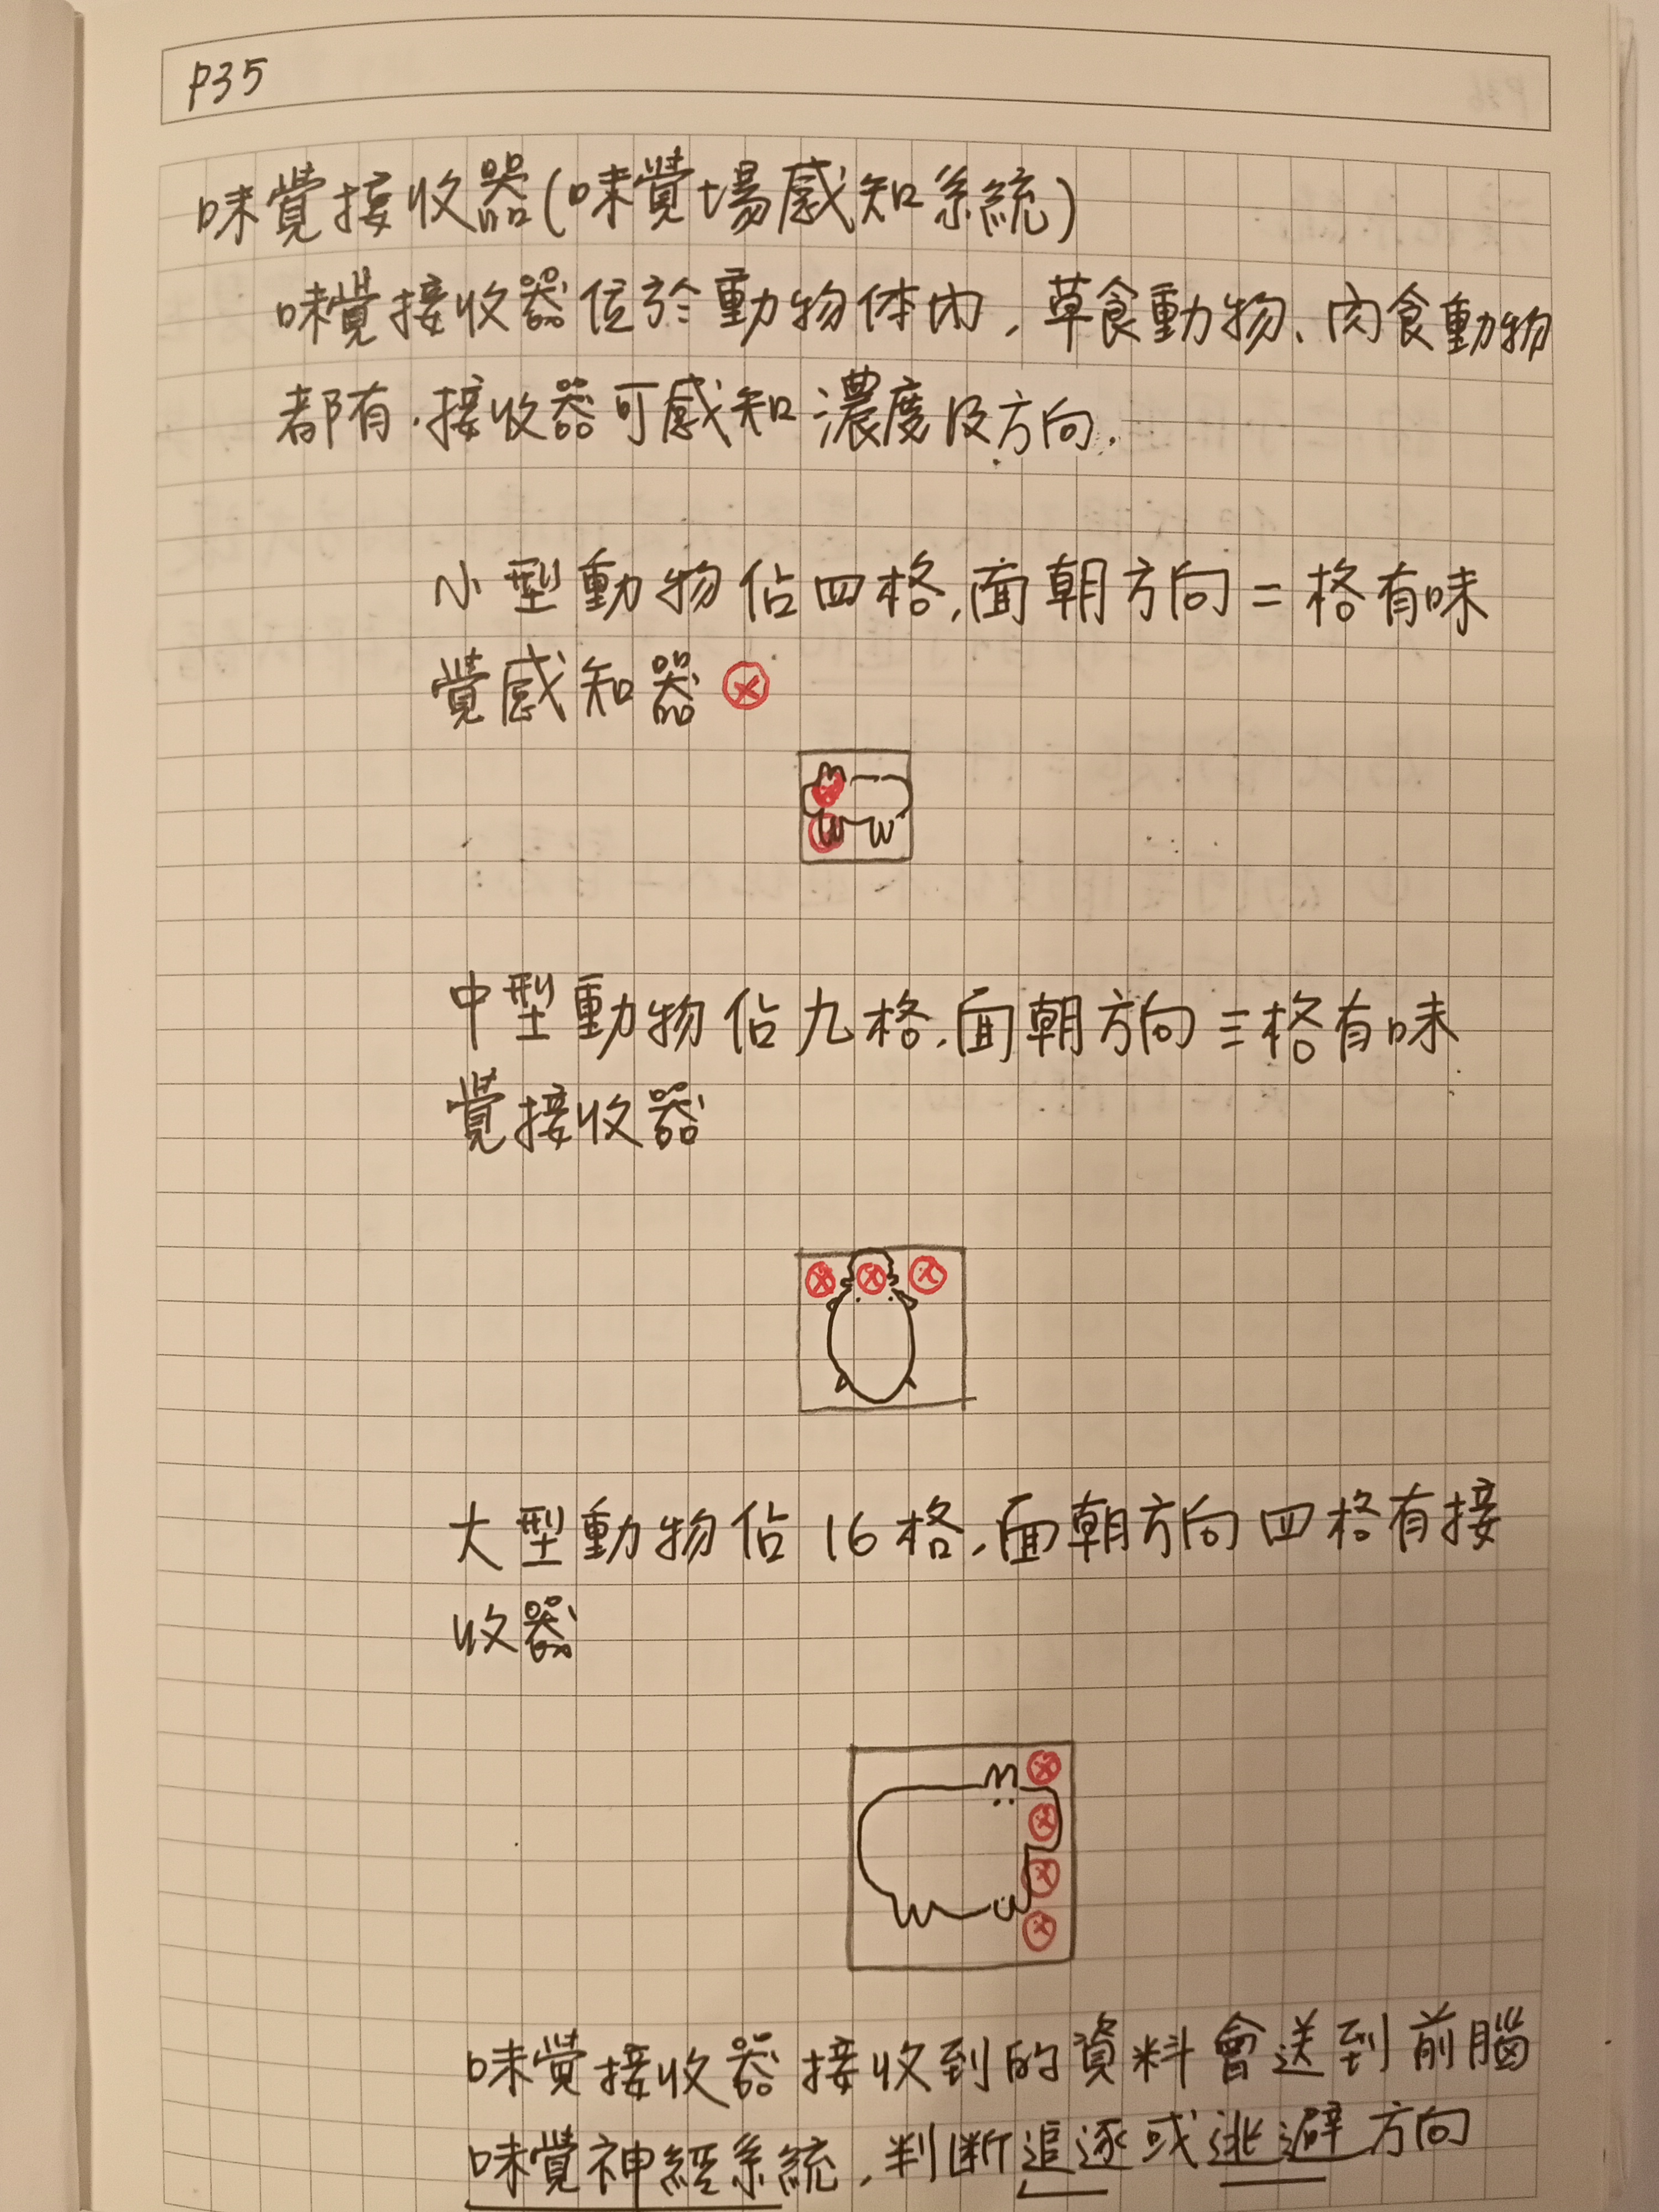 P35
味覺接收器(味覺場感知系統)
味覺接收器位於動物体内,草食動物、肉食動物
都有.接收器可感知濃度及方向.
小型動物佔四格,面朝方向二格有味
覺感知器
中型動物佔九格,面朝方向三格有味
覺接收器
大型動物佔16格,面朝方向四格有接
收器
味覺接收器接收到的資料會送到前腦
味覺神經系統,判斷追逐或逃避方向